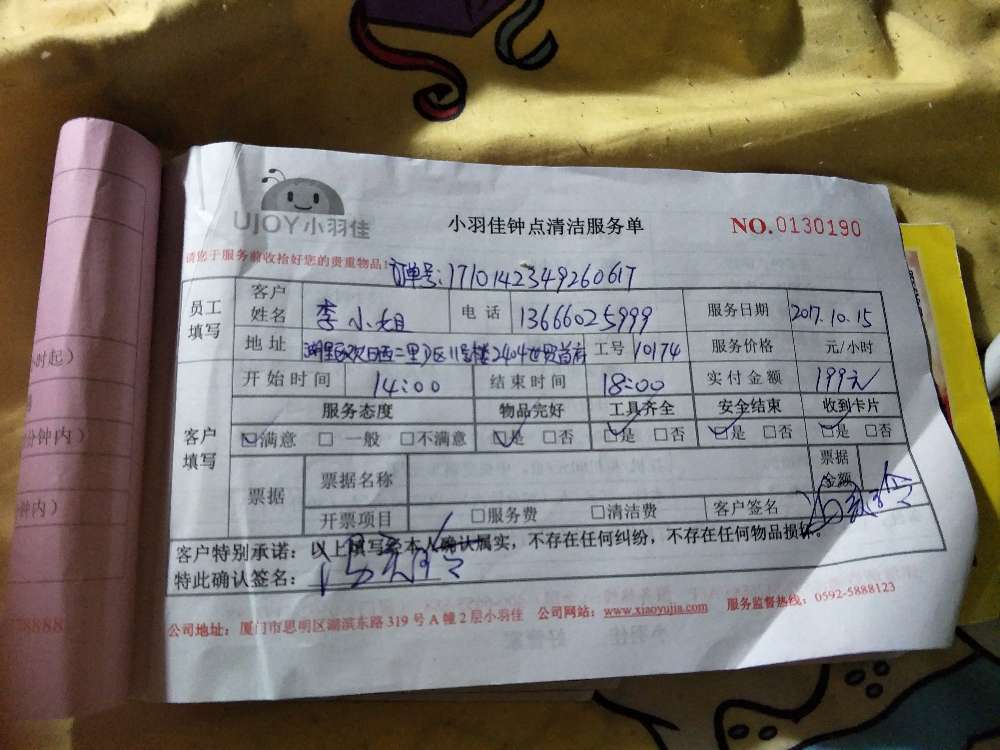 UJOY小羽佳
小羽佳钟点清洁服务单
NO.0130190
请您于服务前收拾好您的贵重物品:
订单号:1710142349260617
员工填写 客户姓名 李小姐 电话 13666025999 服务日期 2017.10.15
地址 二里 区11号楼2404世贸首府 工号 10174 服务价格 元/小时
开始时间 14:00 结束时间 18:00 实付金额 199元
客户填写 服务态度 物品完好 工具齐全 安全结束 收到卡片
☑满意 □一般 □不满意 ☑是 □否 ☑是 □否 ☑是 □否 ☑是 □否
票据 票据名称 票据金额
开票项目 □服务费 □清洁费 客户签名
客户特别承诺:以上填写经本人确认属实,不存在任何纠纷,不存在任何物品损坏。
特此确认签名:
公司地址:厦门市思明区湖滨东路319号A幢2层小羽佳 公司网站:www.xiaoyujia.com 服务监督热线:0592-5888123
时起)
分钟内)
钟内)
8888